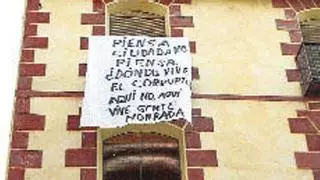 PIENSA
CIUDADANO
PIENSA
¿DÓNDE VIVE
EL CORRUPTO
AQUÍ NO, AQUÍ
VIVE GENTE
HONRADA